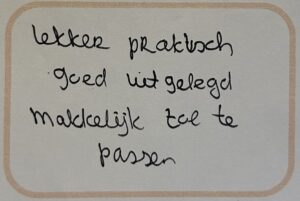 lekker praktisch
goed uitgelegd
makkelijk toe te
passen